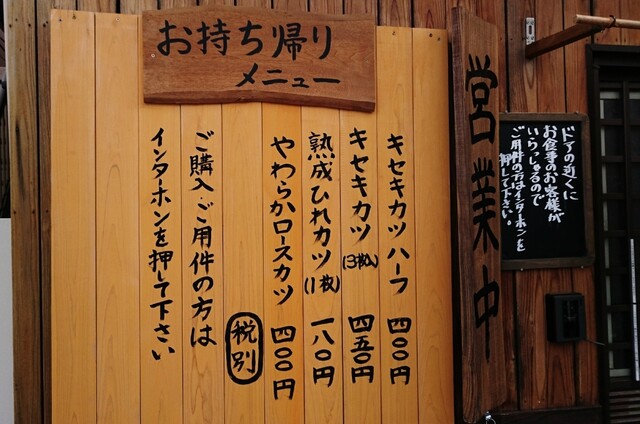 お持ち帰り
メニュー
キセキカツ ハーフ 四〇〇円
キセキカツ(3枚入) 四五〇円
熟成ひれカツ(1枚) 一八〇円
やわらかロースカツ 四〇〇円
税別
ご購入・ご用件の方は
インターホンを押して下さい
営業中
ドアの近くに
お食事のお客様が
いらっしゃるので
ご用件の方はインターホンを
押して下さい。